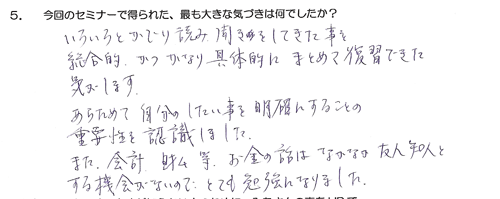 5. 今回のセミナーで得られた、最も大きな気づきは何でしたか？
いろいろとかじり読み 聞きをしてきた事を
総合的、かつかなり具体的に まとめて復習できた
気がします。
あらためて 自分のしたい事を 明確にすることの
重要性を認識しました。
また、会計、財ム等、お金の話は なかなか 友人知人と
する機会がないので、とても 勉強になりました。